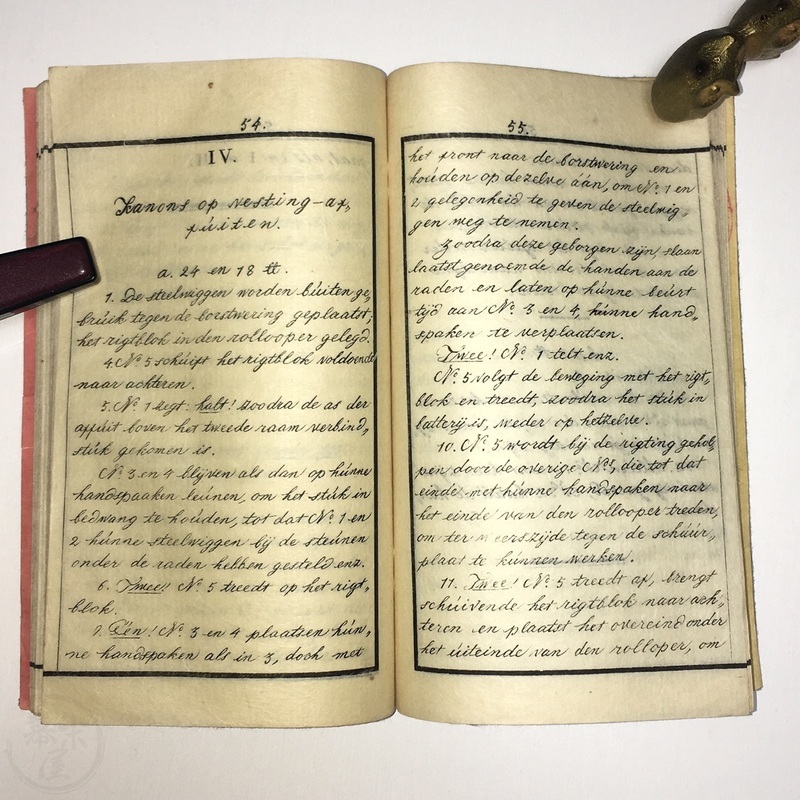 54.
IV.
Kanons op vesting-af„
fúiten.
a. 24 en 18 ℔.
1. De steelwiggen worden búiten ge„
brúik tegen de borstwering geplaatst;
het rigtblok in den rollooper gelegd.
4. No. 5 schúift het rigtblok voldoende
naar achteren.
5. No. 1 zegt: halt! zoodra de as der
affúit boven het tweede raam verbind„
stúk gekomen is.
No. 3 en 4 blijven als dan op húnne
handspaaken leúnen, om het stúk in
bedwang te hoúden, tot dat No. 1 en
2 húnne steelwiggen bij de steúnen
onder de raden hebben gesteld enz.
6. Twee! No. 5 treedt op het rigt„
blok.
9. Één! No. 3 en 4 plaatsen hún„
ne handspaken als in 3, doch met
55.
het front naar de borstwering en
hoúden op dezelve áán, om No. 1 en
2 gelegenheid te geven de steelwig„
gen weg te nemen.
Zoodra deze geborgen zijn, slaan
laatstgenoemde de handen aan de
raden en laten op húnne beúrt
tijd aan No. 3 en 4, húnne hand„
spaken te verplaatsen.
Twee! No. 1 telt enz.
No. 5 volgt de beweging met het rigt„
blok en treedt, zoodra het stúk in
batterij is, weder op hetzelve.
10. No. 5 wordt bij de rigting gehol„
pen door de overige Nos, die tot dat
einde met húnne handspaken naar
het einde van den rollooper treden,
om ter weerszijde tegen de schúúr„
plaat te kúnnen werken.
11. Twee! No. 5 treedt af, brengt
schúivende het rigtblok naar ach„
teren en plaatst het overeind onder
het úiteinde van den rolloper, om